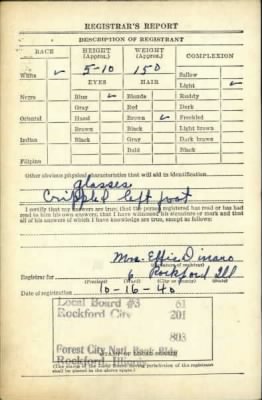 REGISTRAR'S REPORT
DESCRIPTION OF REGISTRANT
RACE HEIGHT (Approx.) WEIGHT (Approx.) COMPLEXION
White ✓ 5-10 150 Sallow
EYES HAIR Light ✓
Negro Blue ✓ Blonde Ruddy
Gray Red Dark
Oriental Hazel Brown ✓ Freckled
Brown Black Light brown
Indian Black Gray Dark brown
Bald Black
Filipino
Other obvious physical characteristics that will aid in identification
glasses
Crippled left foot
I certify that my answers are true; that the person registered has read or has had
read to him his own answers; that I have witnessed his signature or mark and that
all of his answers of which I have knowledge are true, except as follows:
Mrs. Effie Dinaro
(Signature of registrar)
Registrar for 6 Rockford Ill
(Precinct) (Ward) (City or county) (State)
Date of registration 10-16-40
Local Board #3 61
Rockford City 201
803
Forest City Natl. Bank Bldg
Rockford, Illinois
(STAMP OF LOCAL BOARD)
(The stamp of the Local Board having jurisdiction of the registrant
shall be placed in the above space.)